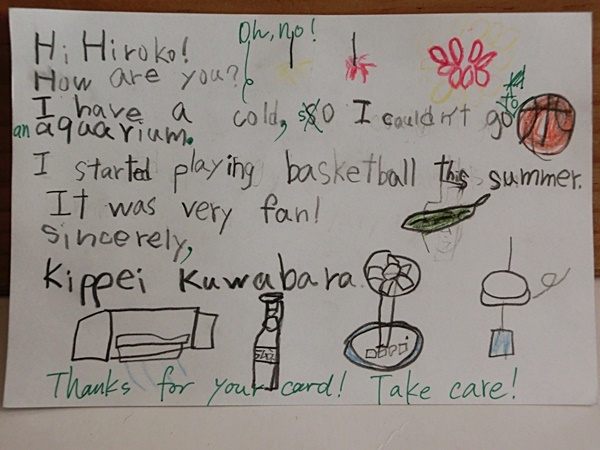 Oh, no!
Hi Hiroko!
How are you?
I have a cold, so I couldn't go to
an aquarium.
I started playing basketball this summer.
It was very fan!
Sincerely,
Kippei Kuwabara
Thanks for your card! Take care!